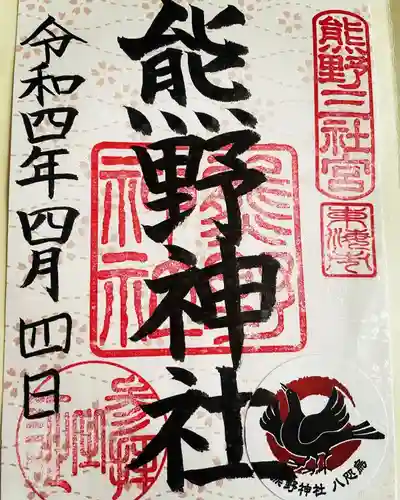 熊野三社宮
東海老
熊野神社
熊野神社
令和四年四月四日
参拝
熊野神社 八咫烏